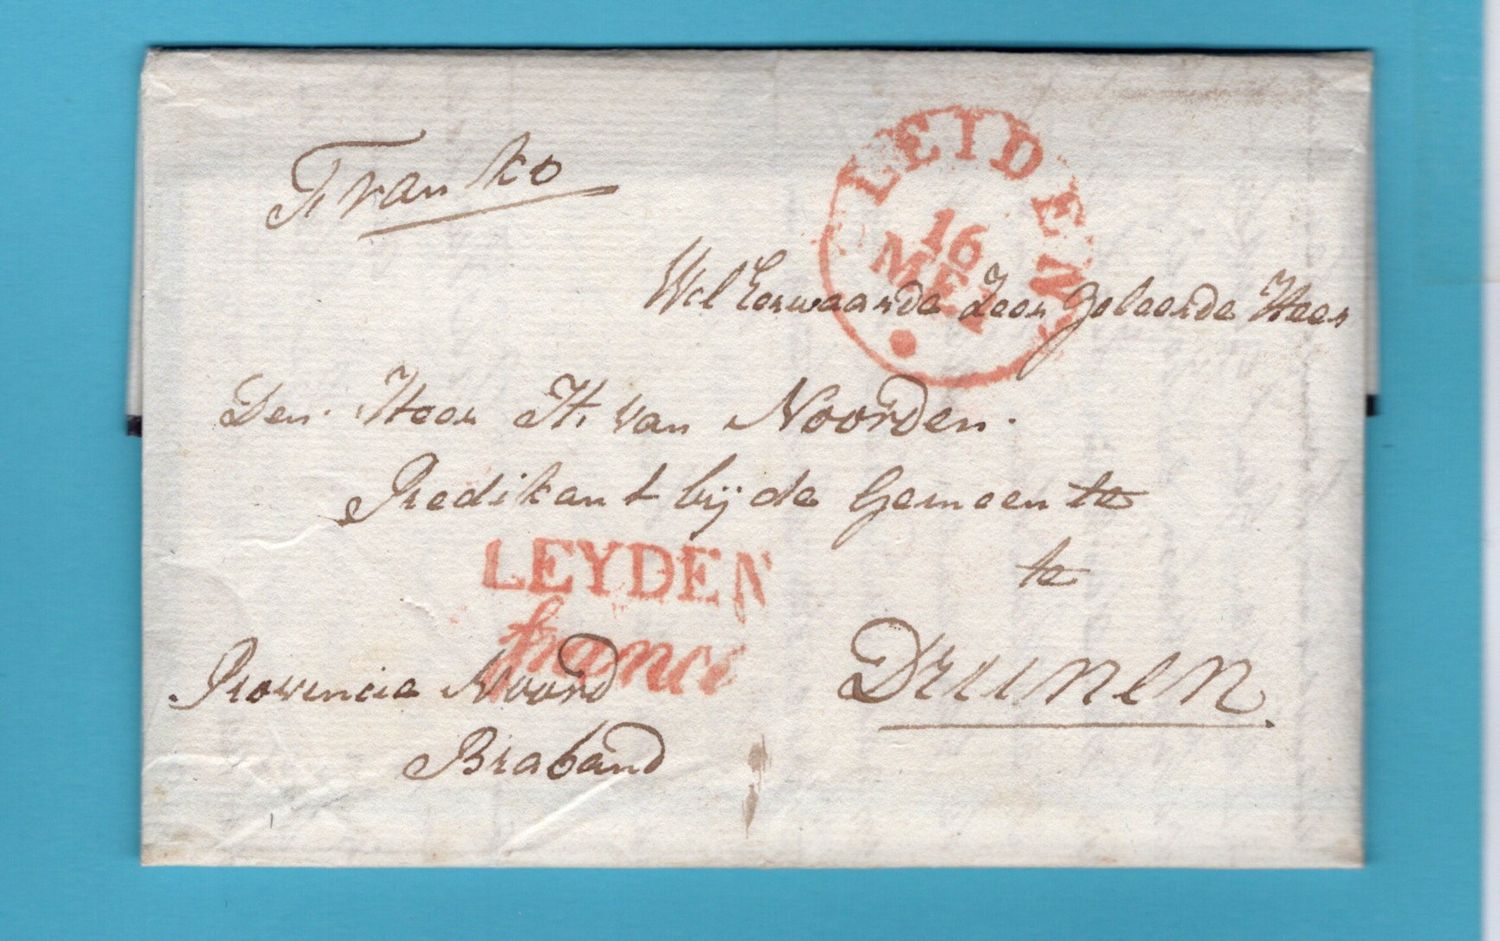 Franko
LEIDEN
16
MEI
Wel Eerwaarde Zeer Geleerde Heer
Den Heer H. van Noorden.
Predikant bij de Gemeente
te
LEYDEN
franco
Drunen.
Provincie Noord
Braband